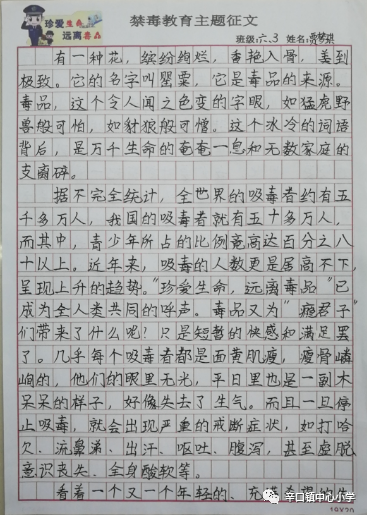 珍爱生命
远离毒品
禁毒教育主题征文
班级:六、3 姓名:贾梦琪
有一种花，缤纷绚烂，香艳入骨，美到
极致。它的名字叫罂粟，它是毒品的来源。
毒品，这个令人闻之色变的字眼，如猛虎野
兽般可怕，如豺狼般可憎。这个冰冷的词语
背后，是万千生命的奄奄一息和无数家庭的
支离碎。
据不完全统计，全世界的吸毒者约有五
千多万人，我国的吸毒者就有五十多万人，
而其中，青少年所占的比例竟高达百分之八
十以上。近年来，吸毒的人数更是居高不下，
呈现上升的趋势。"珍爱生命，远离毒品"已
成为全人类共同的呼声。毒品又为"瘾君子"
们带来了什么呢？只是短暂的快感和满足罢
了。几乎每个吸毒者都是面黄肌瘦，瘦骨嶙
峋的，他们的眼里无光，平日里也是一副木
呆呆的样子，好像失去了生气。而且一旦停
止吸毒，就会出现严重的戒断症状，如打哈
欠、流鼻涕、出汗、呕吐、腹泻，甚至虚脱、
意识丧失、全身酸软等。
看着一个又一个年轻的、充满希望的生
辛口镇中心小学